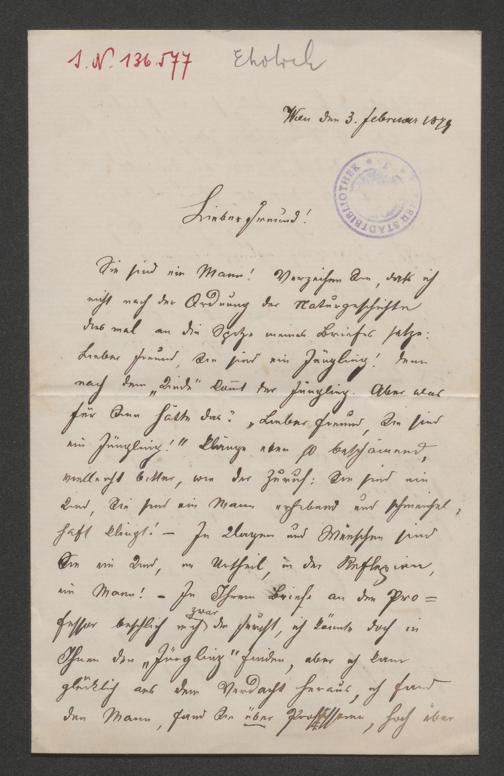 J.N. 136.577
Wien den 3. Februar 1879
STADTBIBLIOTHEK
Lieber Freund!
Sie sind ein Mann! Verzeihen Sie, daß ich
nicht nach der Ordnung der Naturgeschichte
dies mal an die Spitze meines Briefes setze:
Lieber Freund, Sie sind ein Jüngling! denn
nach dem „Kinde" kommt der Jüngling. Aber was
für Sinn hätte das? „Lieber Freund, Sie sind
ein Jüngling!" klänge eben so beschämend,
vielleicht bitter, wie der Zuruf: Sie sind ein
Kind, Sie sind ein Mann erhebend und schmeichel-
haft klingt! — In Klagen und Wünschen sind
Sie ein Kind, im Urtheil, in der Reflexion,
ein Mann! — In Ihrem Briefe an den Pro=
fessor beschlich mich zwar die Furcht, ich könnte doch in
Ihnen den „Jüngling" finden, aber ich kam
glücklich aus dem Verdacht heraus, ich fand
den Mann, fand Sie über Professoren, hoch über